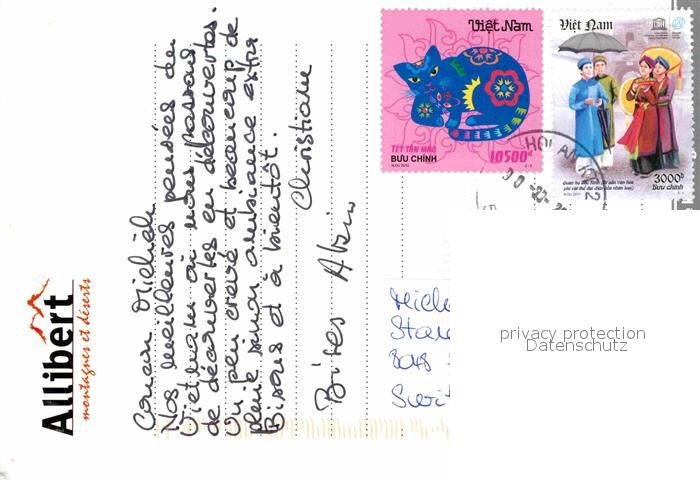 Allibert
montagnes et déserts
Coucou Michèle
Nos meilleures pensées du
Vietnam où nous passons
de découvertes en découvertes.
Un peu crevé et beaucoup de
pluie sinon ambiance extra
Bisous et à bientôt.
Christiane
Bises
Việt Nam
TẾT TÂN MÃO
BƯU CHÍNH
10500đ
Việt Nam
3000đ
Bưu chính
HOI AN
privacy protection
Datenschutz